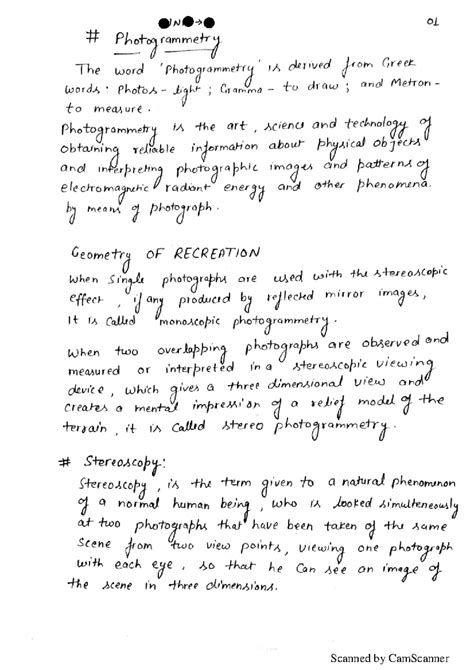 IN → 01
# Photogrammetry
The word 'Photogrammetry' is derived from Greek
words: Photos - light ; Gramma - to draw ; and Metron -
to measure .
Photogrammetry is the art , science and technology of
obtaining reliable information about physical objects
and interpreting photographic images and patterns of
electromagnetic radiant energy and other phenomena.
by means of photograph .
Geometry OF RECREATION
When Single photographs are used with the stereoscopic
effect , if any produced by reflected mirror images,
it is called monoscopic photogrammetry .
When two overlapping photographs are observed and
measured or interpreted in a stereoscopic viewing
device , which gives a three dimensional view and
creates a mental impression of a relief model of the
terrain , it is called stereo photogrammetry .
# Stereoscopy :
Stereoscopy , is the term given to a natural phenomenon
of a normal human being , who is looked simultaneously
at two photographs that have been taken of the same
scene from two view points, viewing one photograph
with each eye , so that he can see an image of
the scene in three dimensions.
Scanned by CamScanner